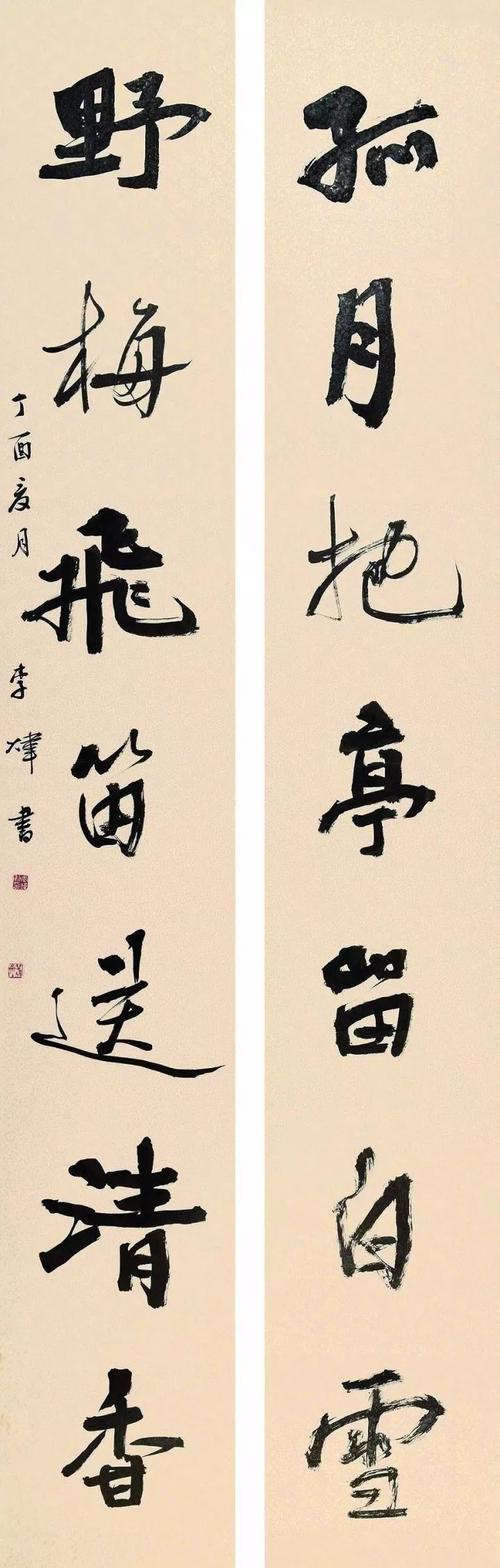 孤月抱亭留白雪
野梅飛笛送清香
丁酉夏月 李煒書